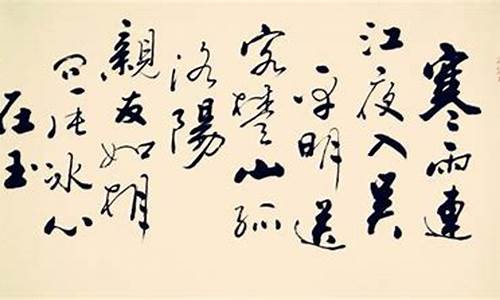 寒雨連
江夜入吳
平明送
客楚山孤
洛陽
親友如相
問一片冰心
在玉